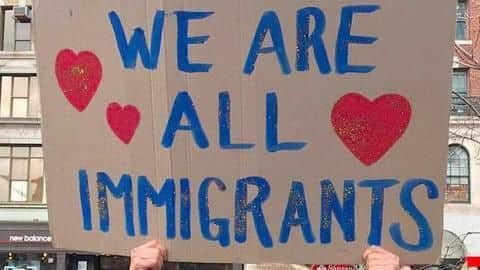 WE ARE
ALL
IMMIGRANTS
new balance